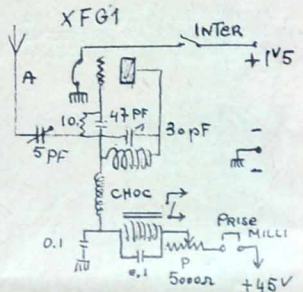 XFG1
INTER
+1V5
A
10.
47PF
30pF
5PF
CHOC
PRISE
MILLI
0.1
0.1
P
5000Ω
+45V